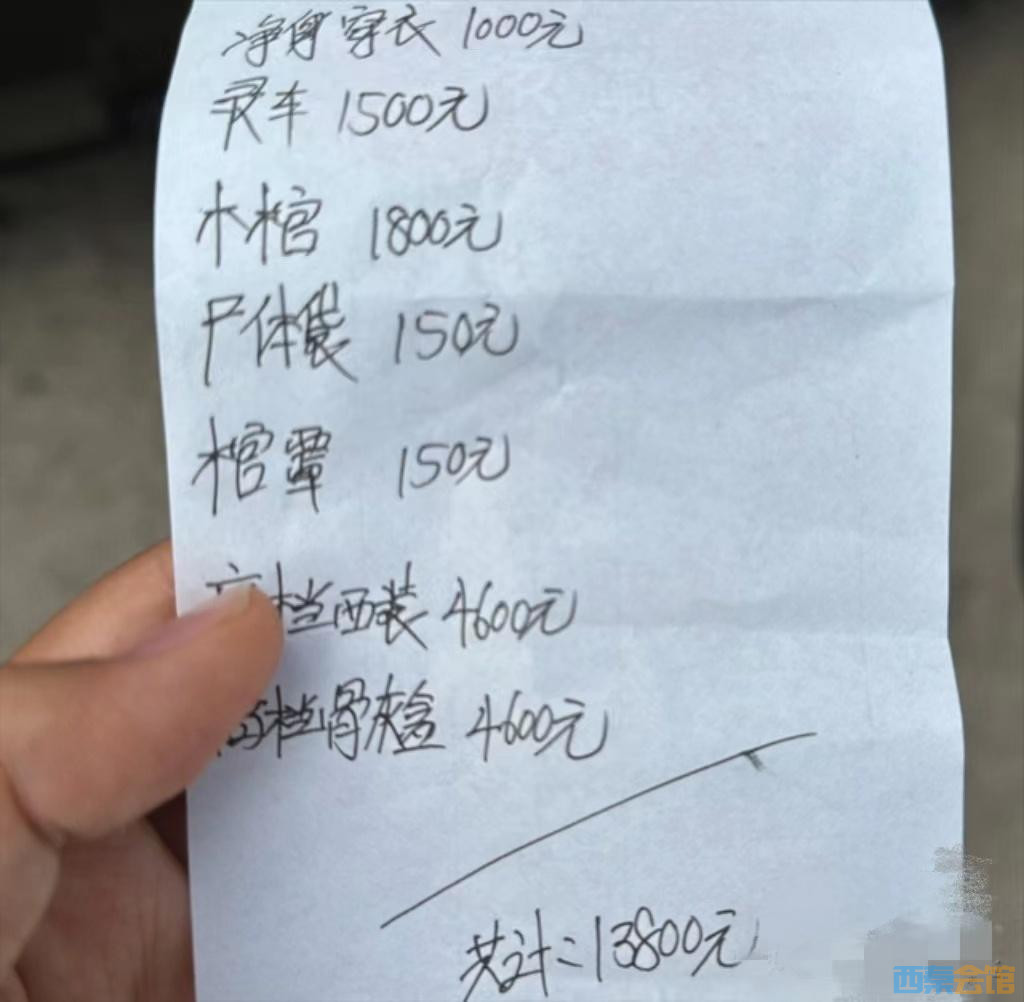 净身穿衣 1000元
灵车 1500元
木棺 1800元
尸体袋 150元
棺罩 150元
高档西装 4600元
高档骨灰盒 4600元
共计：13800元
西祠会馆